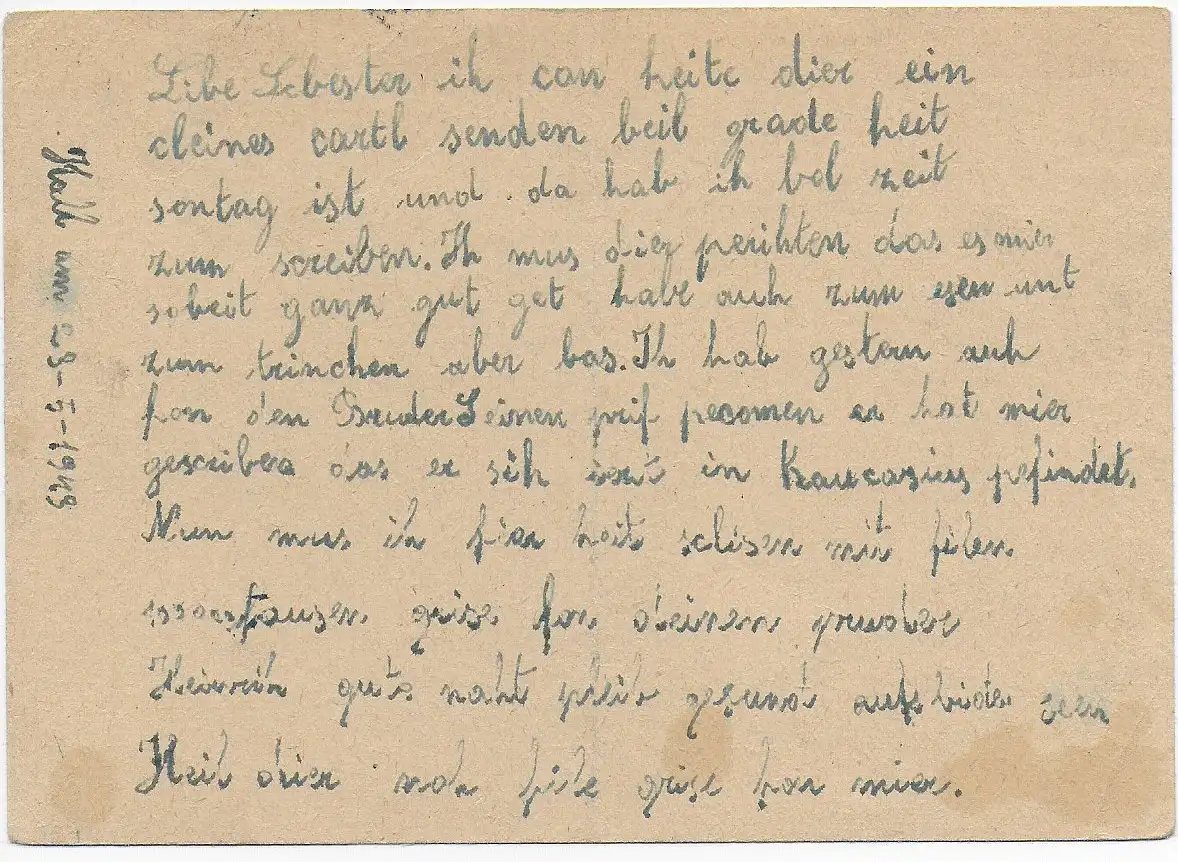 Hall um 23-5-1943
Libe Schbester ih can heite dier ein
cleines cartl senden beil grade heit
sontag ist und da hab ih bol zeit
zum screiben. Ih mus dier perihten das es mier
sobeit ganz gut get habe auh zum esen unt
zum trinchen aber bas. Ih hab gestern auh
fon den Bruder einen prif pecomen er hat mier
gescriben das er sih izt in Kaucasius pefindet.
Nun mus ih fier heit sclisen mit filen
tausen grise fon deinen pruder
Heinrih gute naht pleib gesund auf bider seen
Heil dier noh file grise fon mier.